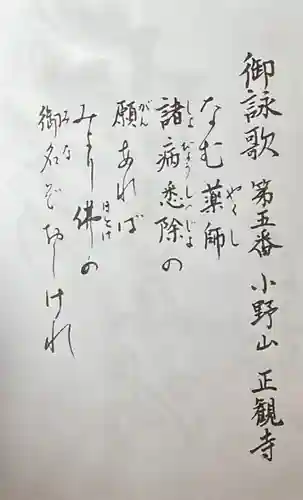 御詠歌 第五番 小野山 正観寺
なむ薬師
やくし
諸病悉除の
しょびょうしつじょ
願あれば
がん
みより佛の
ほとけ
御名ぞおしけれ
みな